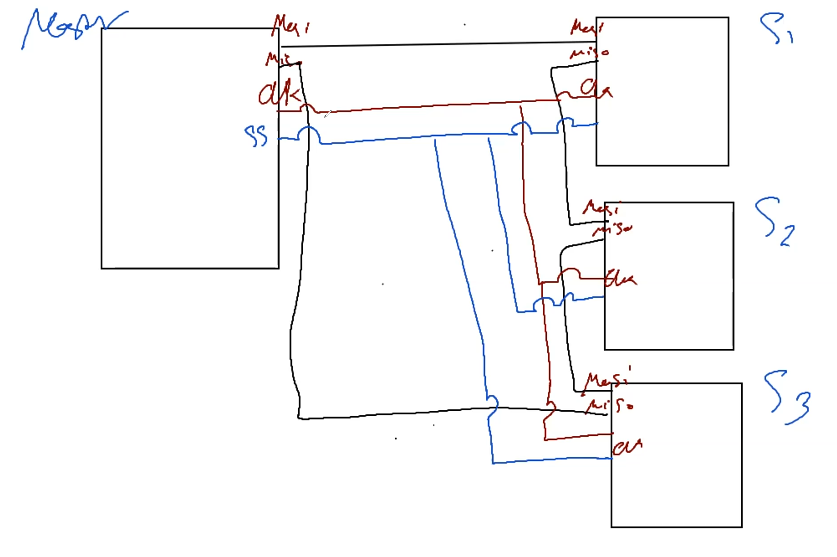 Master
Mosi
Miso
clk
SS
Mosi
miso
clk
S1
Mosi
miso
clk
S2
Mosi
miso
clk
S3